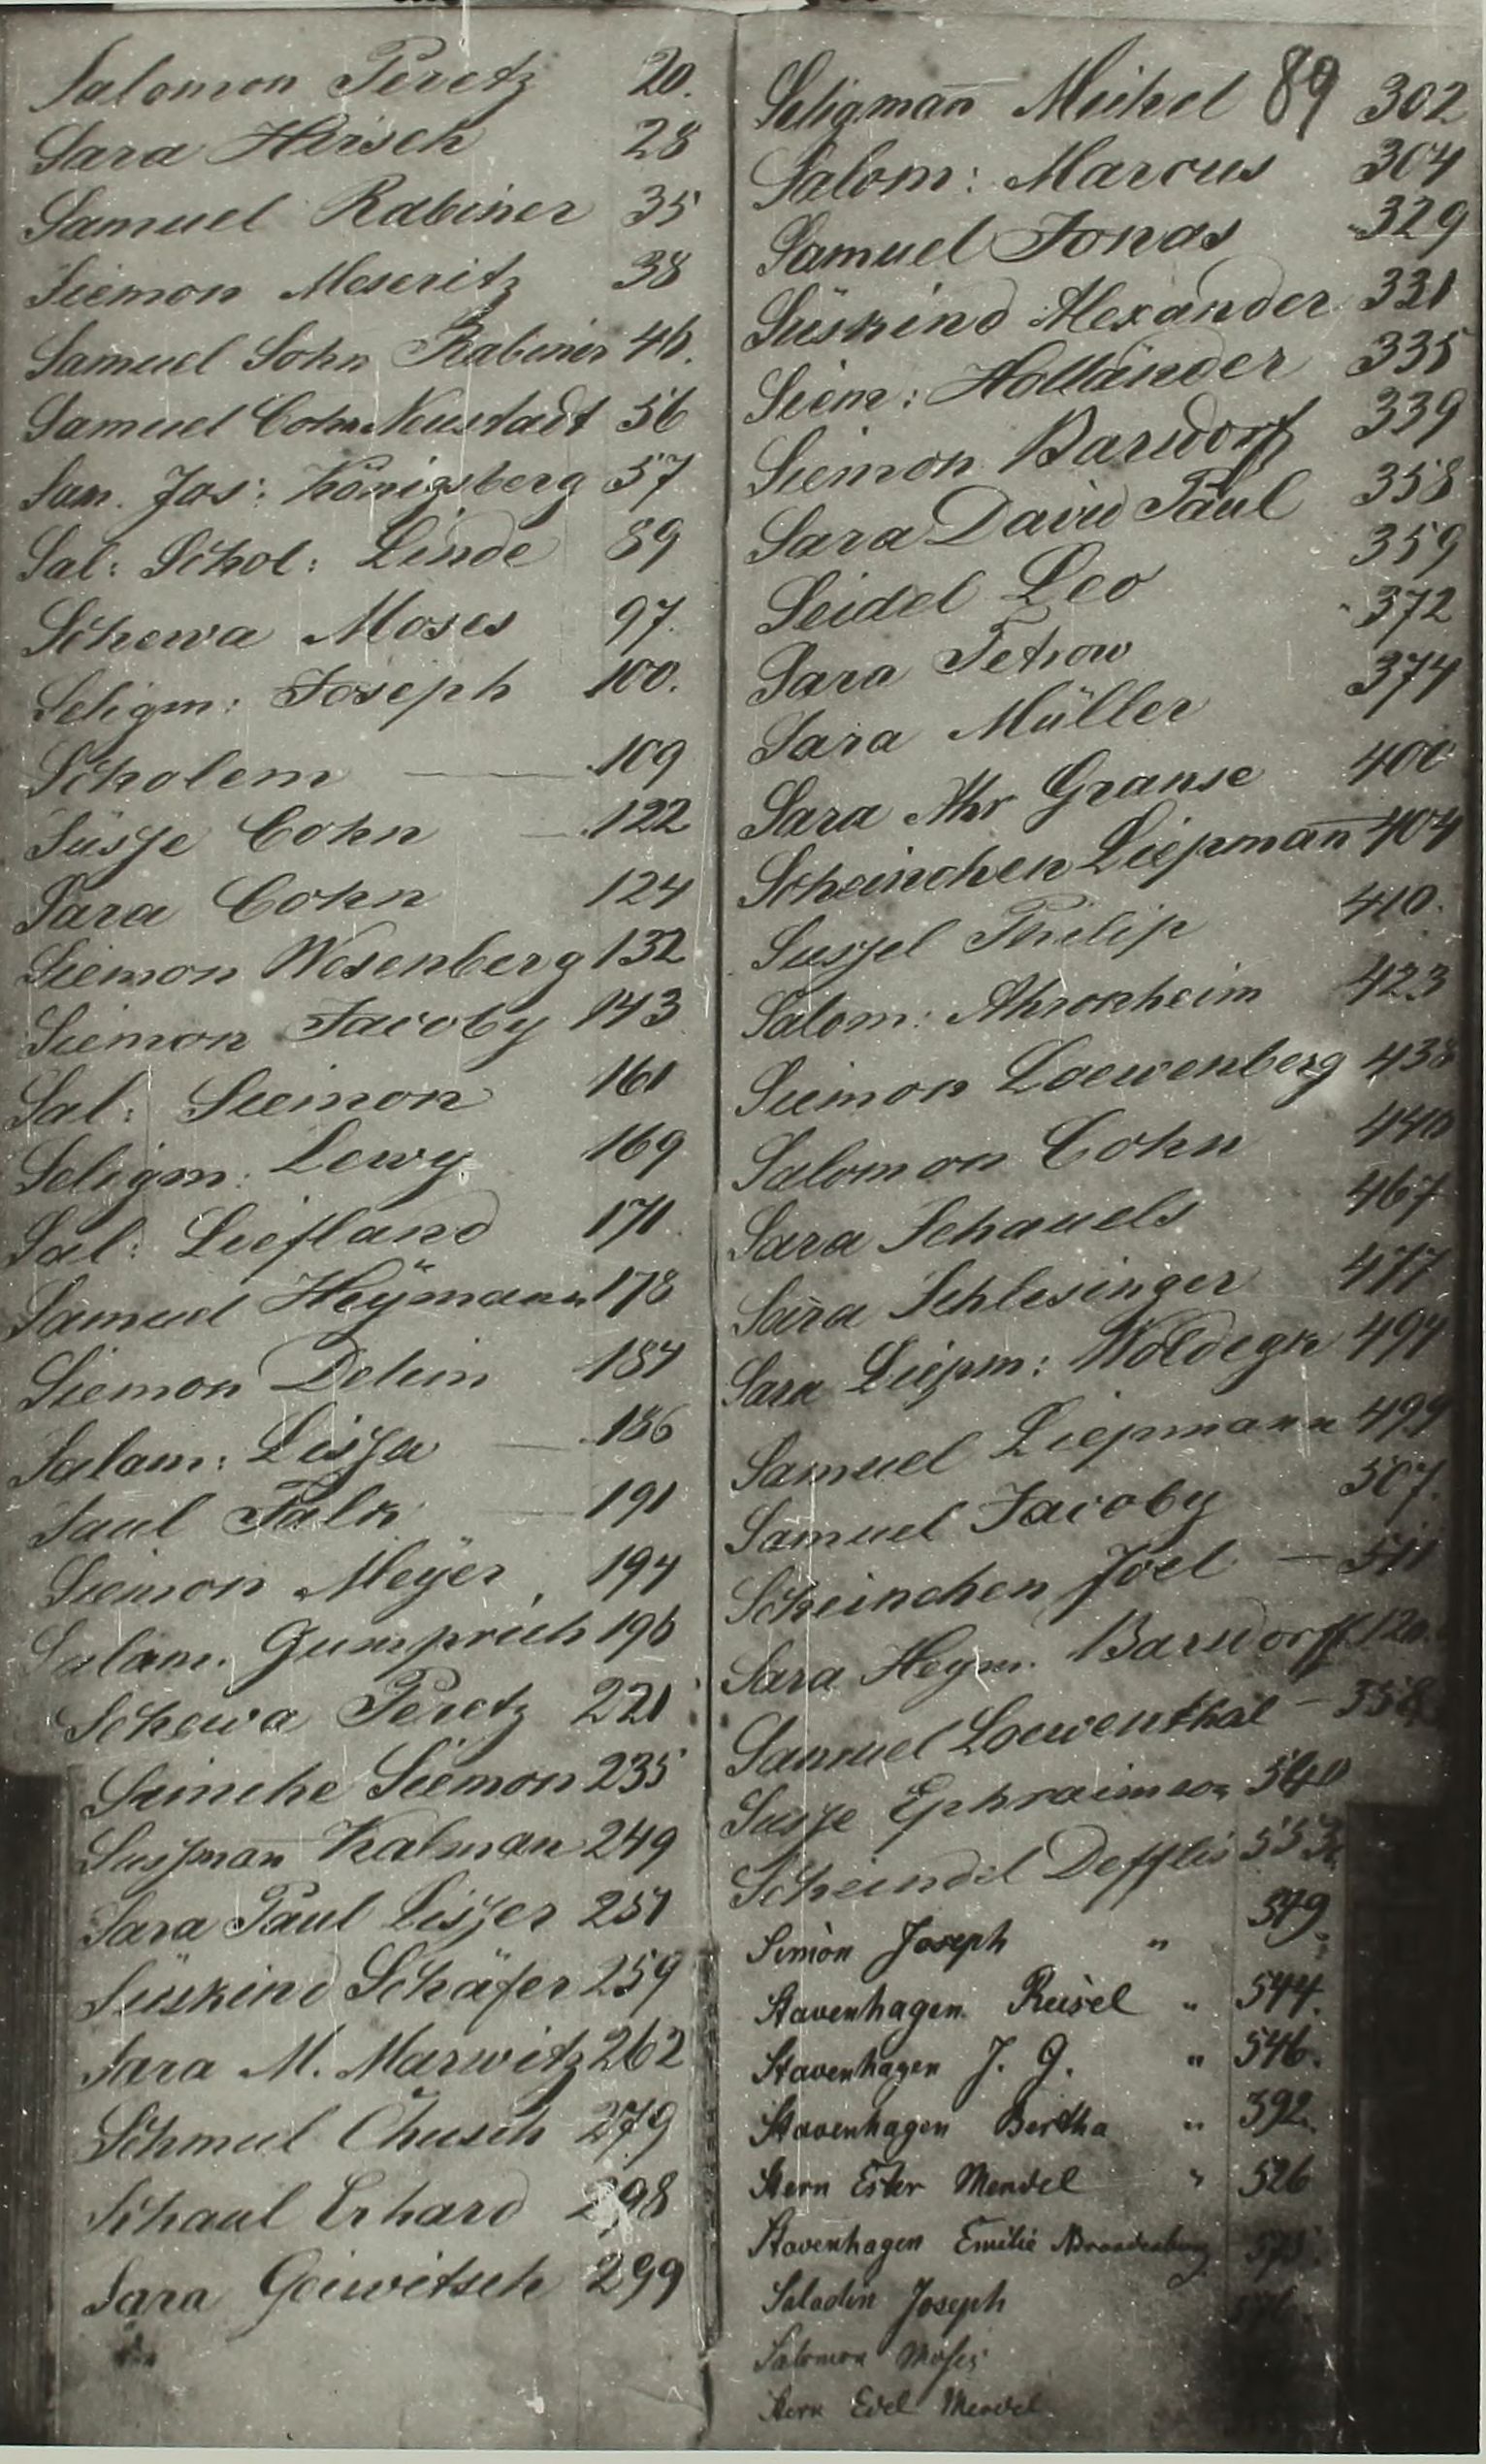 Salomon Peretz 20.
Sara Hirsch 28
Samuel Rabiner 35
Siemon Meseritz 38
Samuel Sohn Rabiner 46.
Samuel Cohn Neustadt 56
Sam. Jos: Königsberg 57
Sal: Schol: Linde 89
Schewa Moses 97.
Seligm: Joseph 100.
Scholem — 109
Süsje Cohn — 122
Sara Cohn 124
Siemon Wosenberg 132
Siemon Jacoby 143
Sal: Siemon 161
Seligm: Lewy 169
Sal: Liefland 171
Samuel Heÿmann 178
Siemon Delein 184
Salam: Lisja — 186
Saul Falk — 191
Siemon Meÿer 194
Salam. Gumprich 196
Schewa Peretz 221
Simche Siemon 235
Susjman Kalman 249
Sara Paul Lisjer 251
Süskind Schäfer 259
Sara M. Marwitz 262
Schmul Chusch 279
Schaul Erhard 298
Sara Goiwitsch 299
89
Seligman̄ Michel 302
Salom: Marcus 304
Samuel Jonas 329
Süskind Alexander 331
Siem: Holländer 335
Siemon Barsdorf 339
Sara David Paul 358
Seidel Leo 359
Sara Tetrow 372
Sara Müller 374
Sara Ahr Granse 400
Scheinchen Liepman̄ 404
Susjel Philip 410.
Salom: Ahronheim 423
Siemon Loewenberg 438
Salomon Cohn 440
Sara Schauels 467
Sara Schlesinger 477
Sara Liepm: Woldegk 494
Samuel Liepmann 499
Samuel Jacoby 507.
Scheinchen Joel — 511
Sara Heym. Barsdorff 120.
Samuel Loewenthal — 358
Susje Ephraimson 540
Scheindel Defflis 553
Simon Joseph " 379.
Stavenhagen Reisel " 544.
Stavenhagen J. G. " 546.
Stavenhagen Bertha " 392.
Stern Ester Mendel " 526
Stavenhagen Emilie Brandenburg
Saladin Joseph
Salomon Moses
Stern Edel Mendel